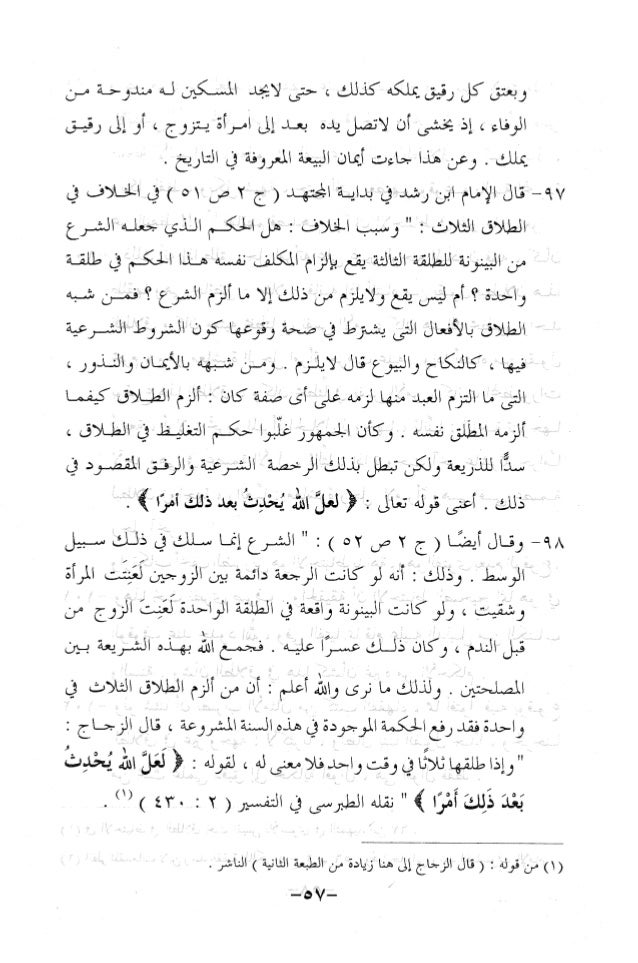 وبعتق كل رقيق يملكه كذلك ، حتى لايجد المسكين له مندوحة من
الوفاء ، إذ يخشى أن لاتصل يده بعد إلى امرأة يتزوج ، أو إلى رقيق
يملك . وعن هذا جاءت أيمان البيعة المعروفة في التاريخ .
٩٧- قال الإمام ابن رشد في بداية المجتهد ( ج ٢ ص ٥١ ) في الخلاف في
الطلاق الثلاث : " وسبب الخلاف : هل الحكم الذي جعله الشرع
من البينونة للطلقة الثالثة يقع بإلزام المكلف نفسه هذا الحكم في طلقة
واحدة ؟ أم ليس يقع ولايلزم من ذلك إلا ما ألزم الشرع ؟ فمن شبه
الطلاق بالأفعال التى يشترط في صحة وقوعها كون الشروط الشرعية
فيها ، كالنكاح والبيوع قال لايلزم . ومن شبهه بالأيمان والنذور ،
التى ما التزم العبد منها لزمه على أى صفة كان : ألزم الطلاق كيفما
ألزمه المطلق نفسه . وكأن الجمهور غلّبوا حكم التغليظ في الطلاق ،
سدًّا للذريعة ولكن تبطل بذلك الرخصة الشرعية والرفق المقصود في
ذلك . أعنى قوله تعالى : ﴿ لعلَّ الله يُحْدِثُ بعد ذلك أمرًا ﴾ .
٩٨- وقال أيضًا ( ج ٢ ص ٥٢ ) : " الشرع إنما سلك في ذلك سبيل
الوسط . وذلك : أنه لو كانت الرجعة دائمة بين الزوجين لَعَنِتَت المرأة
وشقيت ، ولو كانت البينونة واقعة في الطلقة الواحدة لَعَنِتَ الزوج من
قبل الندم ، وكان ذلك عسرًا عليه . فجمع الله بهذه الشريعة بين
المصلحتين . ولذلك ما نرى والله أعلم : أن من ألزم الطلاق الثلاث في
واحدة فقد رفع الحكمة الموجودة في هذه السنة المشروعة ، قال الزجاج :
"وإذا طلقها ثلاثًا في وقت واحد فلا معنى له ، لقوله : ﴿ لَعَلَّ الله يُحْدِثُ
بَعْدَ ذَلِكَ أَمْرًا ﴾ " نقله الطبرسى في التفسير ( ٢ : ٤٣٠ ) (١) .
(١) من قوله : ( قال الزجاج إلى هنا زيادة من الطبعة الثانية ) الناشر .
-٥٧-